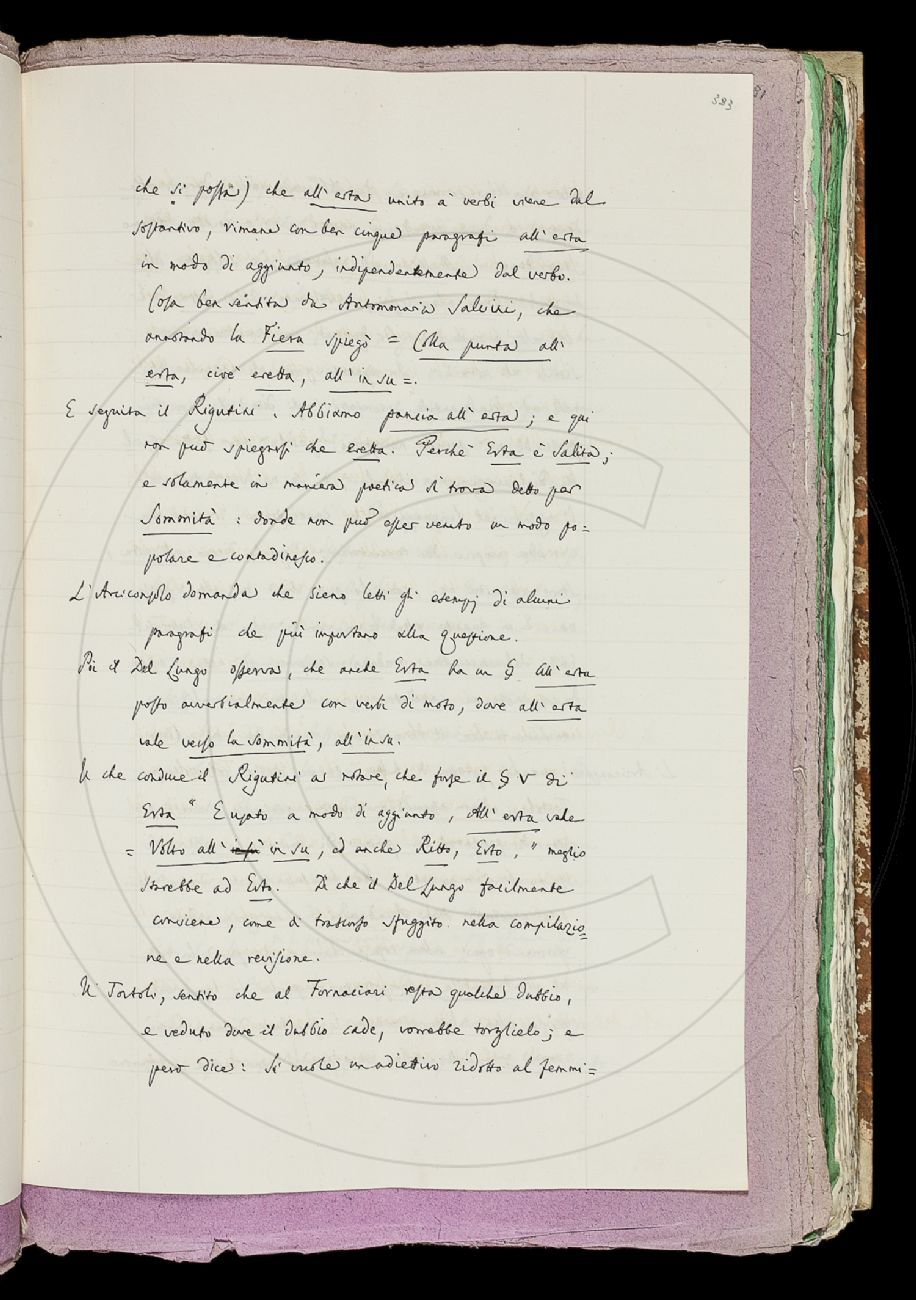 383
che si possa) che all'erta unito a verbi viene dal
sostantivo, rimane con ben cinque paragrafi all'erta
in modo di aggiunto, indipendentemente dal verbo.
Cosa ben sentita da Antonmaria Salvini, che
annotando la Fiera spiegò = Colla punta all'
erta, cioè eretta, all'in su =.
E seguita il Rigutini. Abbiamo pancia all'erta; e qui
non può spiegarsi che eretta. Perchè Erta è Salita;
e solamente in maniera poetica si trova detto per
Sommità: donde non può esser venuto un modo po=
polare e contadinesco.
L'Arciconsolo domanda che sieno letti gli esempj di alcuni
paragrafi che più importano alla questione.
Poi il Del Lungo osserva, che anche Erta ha un §. All'erta
posto avverbialmente con verbi di moto, dove all'erta
vale verso la sommità, all'in su.
Il che conduce il Rigutini a notare, che forse il § V di
Erta " E usato a modo di aggiunto, All'erta vale
= Volto all' in su, ed anche Ritto, Erto, " meglio
starebbe ad Erto. Di che il Del Lungo facilmente
conviene, come di trascorso sfuggito nella compilazio=
ne e nella revisione.
Il Tortoli, sentito che al Fornaciari resta qualche dubbio,
e veduto dove il dubbio cade, vorrebbe torglielo; e
però dice: Si vuole un adiettivo ridotto al femmi=